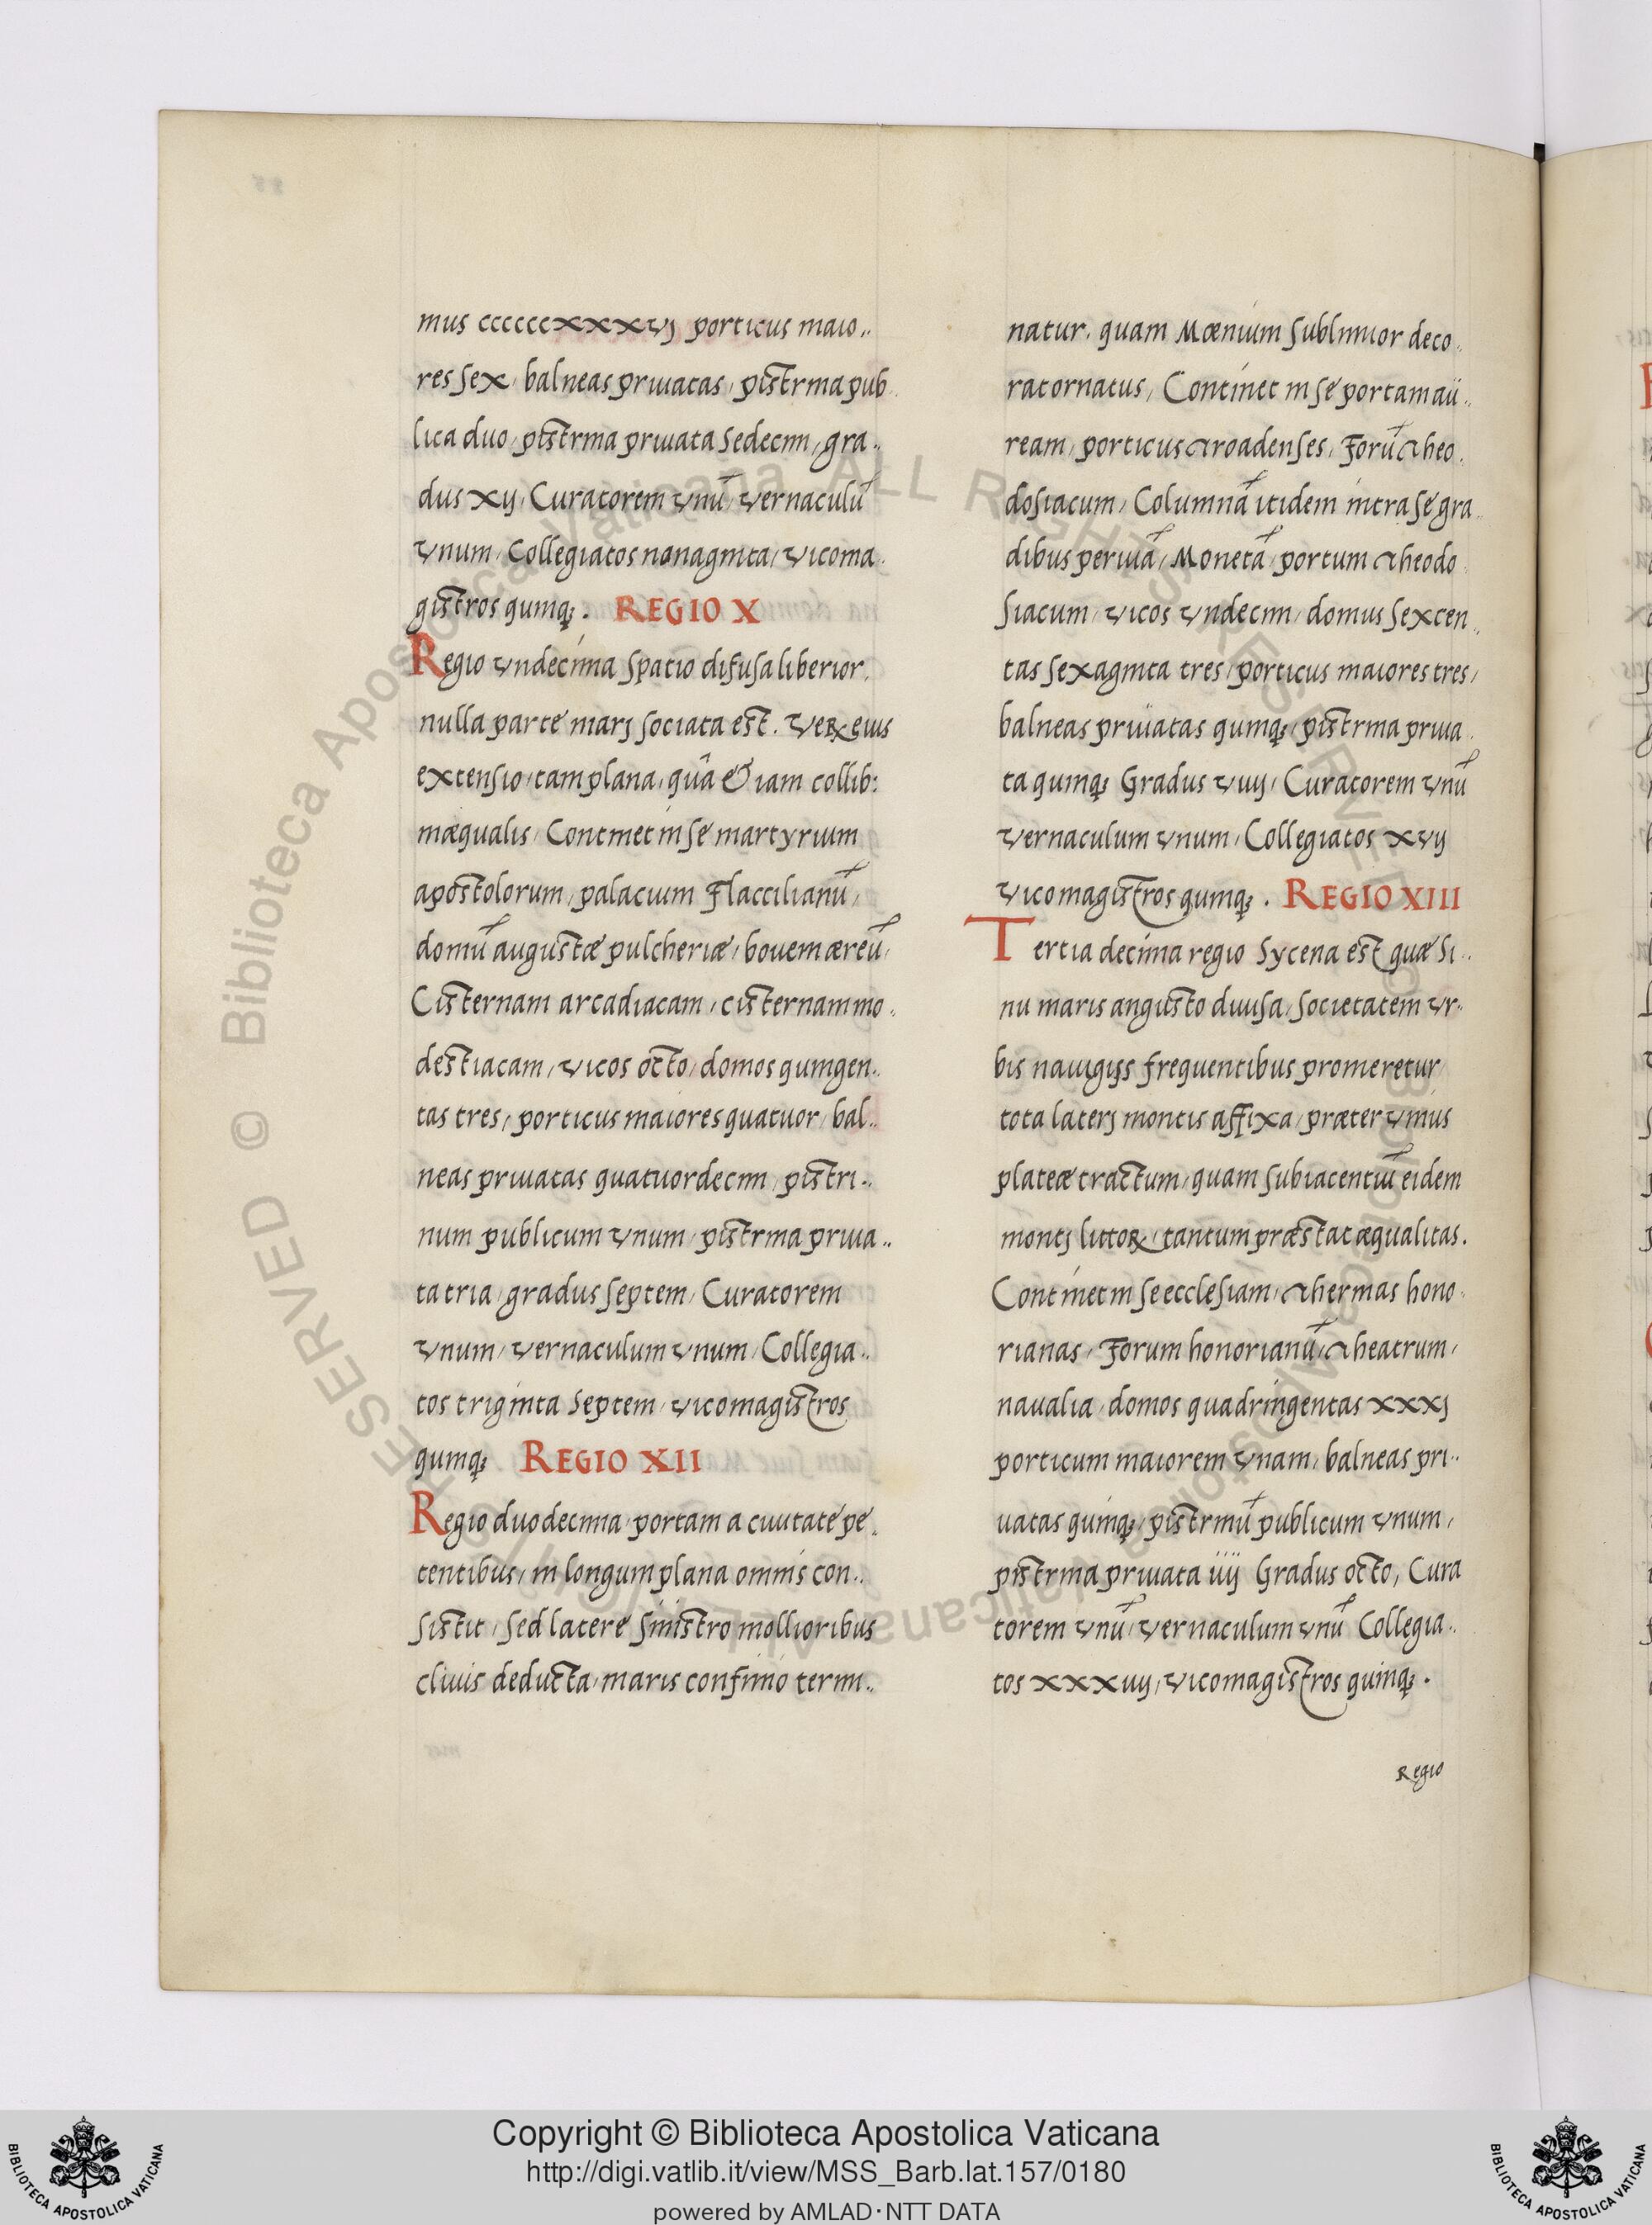 mus ccccccxxxvj porticus maio..
res sex, balneas priuatas, pistrina pub
lica duo, pistrina priuata sedecim, gra..
dus xij, Curatorem vnū, vernaculū
vnum, Collegiatos nonaginta, vicoma.
gistros quinq;. REGIO X
Regio vndecima spatio difusa liberior.
nulla parte marj sociata est. Veꝝ eius
extensio, tam plana, quā etiam collib:
inæqualis, Continet in se martyrium
apostolorum, palacium Flaccilianū,
domū augustæ pulcheriæ, bouem æreū,
Cisternam arcadiacam, cisternam mo.
destiacam, vicos octo, domos quingen..
tas tres, porticus maiores quatuor, bal..
neas priuatas quatuordecim, pistri..
num publicum vnum, pistrina priua..
ta tria, gradus septem, Curatorem
vnum, vernaculum vnum, Collegia..
tos triginta septem, vicomagistros
quinq; REGIO XII
Regio duodecima, portam a ciuitate pe.
tentibus, in longum plana omnis con..
sistit, sed latere sinistro mollioribus
cliuis deducta, maris confinio termi..
natur. quam Mœnium sublimior deco.
rat ornatus, Continet in se portam au..
ream, porticus troadenses, Forū theo.
dosiacum, Columnā itidem intra se gra.
dibus periuiā, Monetā, portum theodo.
siacum, vicos vndecim, domus sexcen..
tas sexaginta tres, porticus maiores tres,
balneas priuatas quinq;, pistrina priua.
ta quinq; Gradus viiij, Curatorem vnū
vernaculum vnum, Collegiatos xvij
vicomagistros quinq;. REGIO XIII
Tertia decima regio Sycena est quæ si..
nu maris angusto diuisa, societatem vr..
bis nauigijs frequentibus promeretur
tota laterj montis affixa, præter vnius
plateæ tractum, quam subiacentiū eidem
montj littoꝝ, tantum præstat æqualitas.
Continet in se ecclesiam, thermas hono.
rianas, Forum honorianū, theatrum,
naualia, domos quadringentas xxxj
porticum maiorem vnam, balneas pri..
uatas quinq;, pistrinū publicum vnum,
pistrina priuata iiij Gradus octo, Cura
torem vnū, vernaculum vnū Collegia..
tos xxxiiij, vicomagistros quinq;.
Regio
© Biblioteca Apostolica Vaticana ALL RIGHTS RESERVED
Copyright © Biblioteca Apostolica Vaticana
http://digi.vatlib.it/view/MSS_Barb.lat.157/0180
powered by AMLAD·NTT DATA
BIBLIOTECA APOSTOLICA VATICANA
BIBLIOTECA APOSTOLICA VATICANA